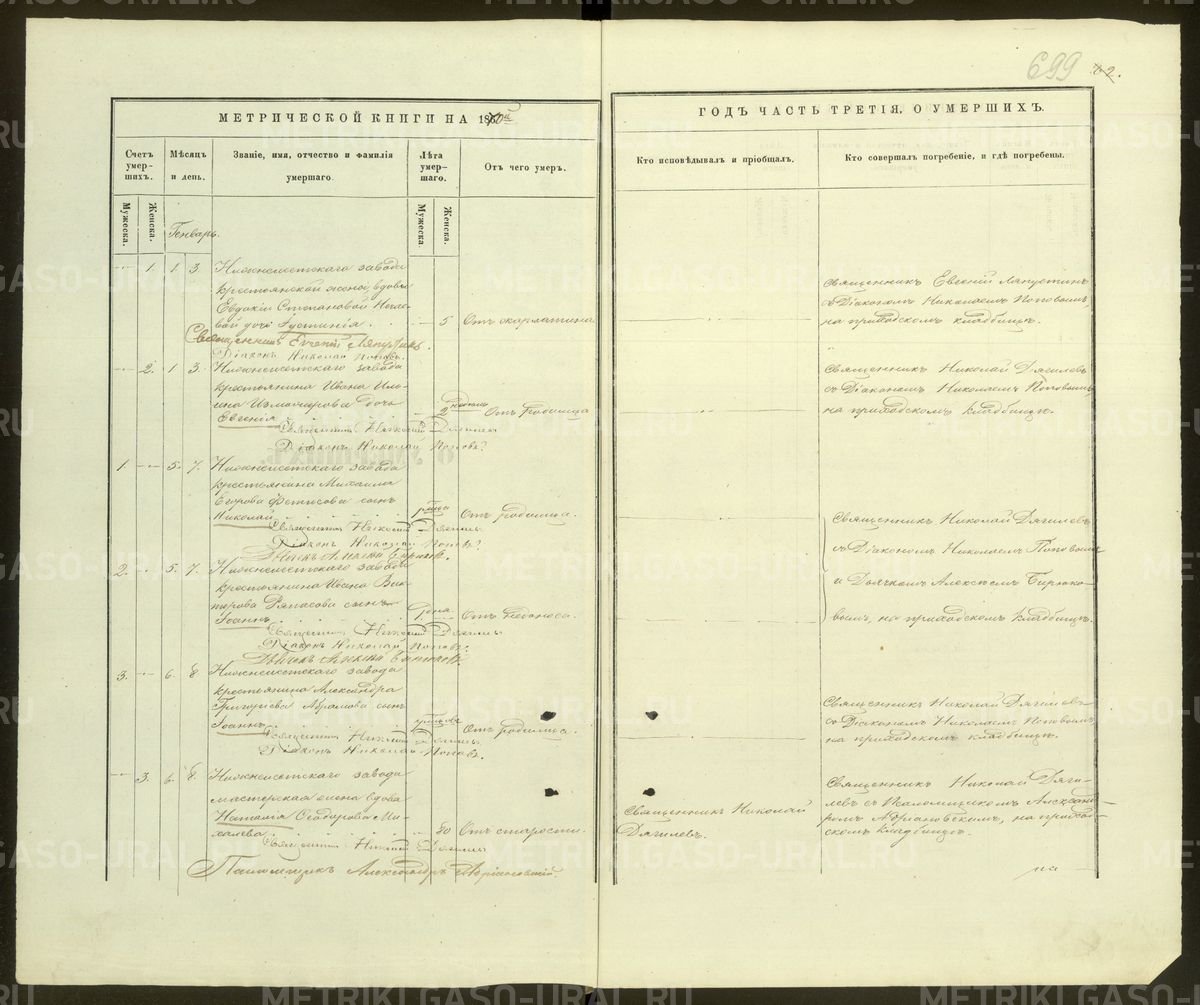 699
МЕТРИЧЕСКОЙ КНИГИ НА 18
ГОДЪ ЧАСТЬ ТРЕТІЯ, О УМЕРШИХЪ.
Счетъ умер-шихъ.
Мужеска.
Женска.
Мѣсяцъ и день.
Званіе, имя, отчество и фамилія умершаго.
Лѣта умер-шаго.
Мужеска
Женска.
Отъ чего умеръ.
Кто исповѣдывалъ и пріобщалъ.
Кто совершалъ погребеніе, и гдѣ погребены.
Генварь.
1. 1 3. Нижнеисетскаго завода
крестьянской жены вдовы
Евдокіи Степановой
дочь Іустинія 5 Отъ скарлатина
Священникъ Евгеній Ляпустинъ
съ Діакономъ Николаемъ Поповымъ,
на приходскомъ кладбищѣ.
Священникъ Евгеній Ляпустинъ.
Діаконъ Николай Поповъ.
2. 1 3. Нижнеисетскаго завода
крестьянина Ивана
дочь
Евгенія 2 недѣли Отъ родимца
Священникъ Николай Дягилевъ
съ Діакономъ Николаемъ Поповымъ
на приходскомъ кладбищѣ.
Священникъ Николай Дягилевъ
Діаконъ Николай Поповъ
1. 5. 7. Нижнеисетскаго завода
крестьянина Михаила
Егорова Фетисова сынъ
Николай Отъ родимца.
Священникъ Николай Дягилевъ
съ Діакономъ Николаемъ Поповымъ
и Дьячкомъ Алексѣемъ Бирюко-
вымъ, на приходскомъ кладбищѣ.
Священникъ Николай Дягилевъ
Діаконъ Николай Поповъ
Дьячекъ Алексѣй Бирюковъ.
2. 5. 7. Нижнеисетскаго завода
крестьянина Ивана Вик-
торова сынъ
Іоаннъ 1 дня Отъ недоноса.
Священникъ Николай Дягилевъ
Діаконъ Николай Поповъ
Дьячекъ Алексѣй Бирюковъ
3. 6. 8. Нижнеисетскаго завода
крестьянина Александра
Григорьева Абрамова сынъ
Іоаннъ Отъ родимца.
Священникъ Николай Дягилевъ
съ Діакономъ Николаемъ Поповымъ,
на приходскомъ кладбищѣ.
Священникъ Николай Дягилевъ
Діаконъ Николай Поповъ.
3. 6. 8. Нижнеисетскаго завода
мастерская жена вдова
Наталія Ѳеодорова Ми-
халева 80 Отъ старости.
Священникъ Николай
Дягилевъ.
Священникъ Николай Дяги-
левъ съ Псаломщикомъ Александ-
ромъ Адріановскимъ, на приход-
скомъ кладбищѣ.
Священникъ Николай Дягилевъ
Псаломщикъ Александръ Адріановскій.
на
METRIKI.GASO-URAL.RU